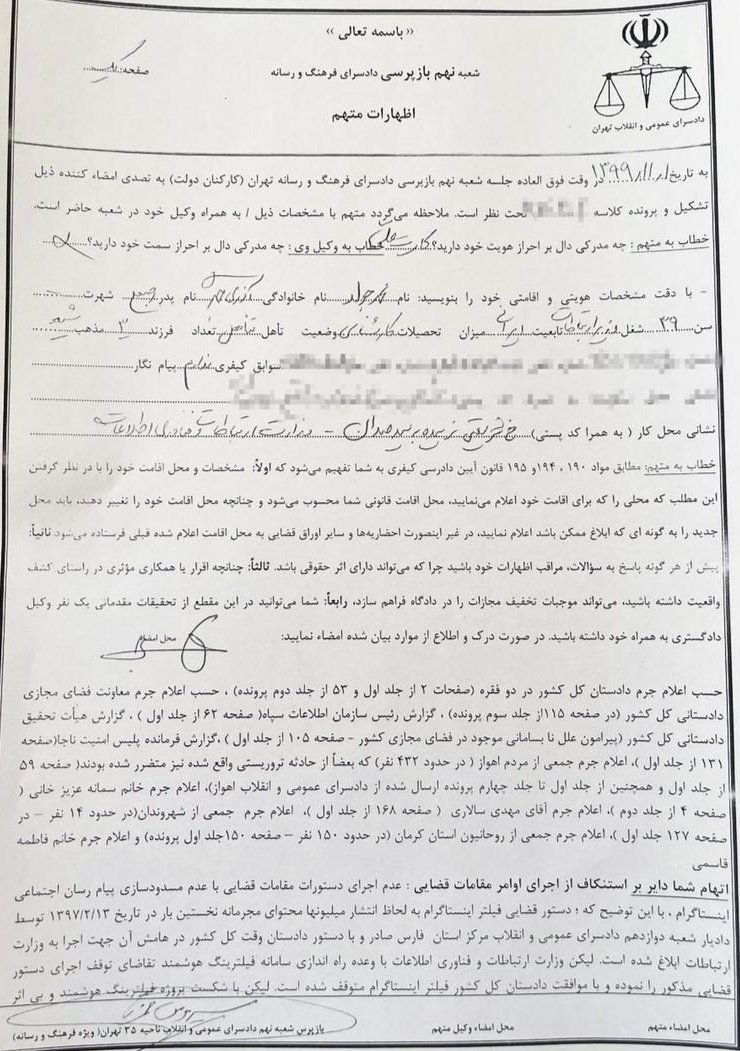 «باسمه تعالی»
شعبه نهم بازپرسی دادسرای فرهنگ و رسانه
صفحه: یک
اظهارات متهم
دادسرای عمومی و انقلاب تهران
به تاریخ ۱۳۹۹/۱۱/۰۱ در وقت فوق العاده جلسه شعبه نهم بازپرسی دادسرای فرهنگ و رسانه تهران (کارکنان دولت) به تصدی امضاء کننده ذیل
تشکیل و پرونده کلاسه تحت نظر است. ملاحظه می‌گردد متهم با مشخصات ذیل / به همراه وکیل خود در شعبه حاضر است.
خطاب به متهم: چه مدرکی دال بر احراز هویت خود دارید؟ کارت ملی خطاب به وکیل وی: چه مدرکی دال بر احراز سمت خود دارید؟
- با دقت مشخصات هویتی و اقامتی خود را بنویسید: نام محمدجواد نام خانوادگی آذری جهرمی نام پدر شهرت
سن ۳۹ شغل وزیر ارتباطات تابعیت ایرانی میزان تحصیلات کارشناسی وضعیت تأهل متأهل تعداد فرزند ۳ مذهب شیعه
سوابق کیفری ندارم پیام نگار
نشانی محل کار ( به همرا کد پستی) خ شریعتی نرسیده به پل سیدخندان - وزارت ارتباطات و فناوری اطلاعات
خطاب به متهم: مطابق مواد ۱۹۰ ، ۱۹۴و ۱۹۵ قانون آیین دادرسی کیفری به شما تفهیم می‌شود که اولاً: مشخصات و محل اقامت خود را با در نظر گرفتن
این مطلب که محلی را که برای اقامت خود اعلام می‌نمایید، محل اقامت قانونی شما محسوب می‌شود و چنانچه محل اقامت خود را تغییر دهید، باید محل
جدید را به گونه ای که ابلاغ ممکن باشد اعلام نمایید، در غیر اینصورت احضاریه‌ها و سایر اوراق قضایی به محل اقامت اعلام شده قبلی فرستاده می‌شود ثانیاً:
پیش از هر گونه پاسخ به سؤالات، مراقب اظهارات خود باشید چرا که می‌تواند دارای اثر حقوقی باشد. ثالثاً: چنانچه اقرار یا همکاری مؤثری در راستای کشف
واقعیت داشته باشید، می‌تواند موجبات تخفیف مجازات را در دادگاه فراهم سازد، رابعاً: شما می‌توانید در این مقطع از تحقیقات مقدماتی یک نفر وکیل
دادگستری به همراه خود داشته باشید. در صورت درک و اطلاع از موارد بیان شده امضاء نمایید:
محل امضاء
حسب اعلام جرم دادستان کل کشور در دو فقره (صفحات ۲ از جلد اول و ۵۳ از جلد دوم پرونده) ، حسب اعلام جرم معاونت فضای مجازی
دادستانی کل کشور (در صفحه ۱۱۵از جلد سوم پرونده) ، گزارش رئیس سازمان اطلاعات سپاه( صفحه ۶۲ از جلد اول ) ، گزارش هیأت تحقیق
دادستانی کل کشور (پیرامون علل نا بسامانی موجود در فضای مجازی کشور - صفحه ۱۰۵ از جلد اول ) ،گزارش فرمانده پلیس امنیت ناجا(صفحه
۱۳۱ از جلد اول)، اعلام جرم جمعی از مردم اهواز ( در حدود ۴۳۲ نفر) که بعضاً از حادثه تروریستی واقع شده نیز متضرر شده بودند( صفحه ۵۹
از جلد اول و همچنین از جلد اول تا جلد چهارم پرونده ارسال شده از دادسرای عمومی و انقلاب اهواز)، اعلام جرم خانم سمانه عزیز خانی (
صفحه ۴ از جلد دوم )، اعلام جرم آقای مهدی سالاری ( صفحه ۱۶۸ از جلد اول )، اعلام جرم جمعی از شهروندان(در حدود ۱۴ نفر – در
صفحه ۱۲۷ جلد اول)، اعلام جرم جمعی از روحانیون استان کرمان (در حدود ۱۵۰ نفر – صفحه ۱۵۰جلد اول پرونده) و اعلام جرم خانم فاطمه
قاسمی
اتهام شما دایر بر استنکاف از اجرای اوامر مقامات قضایی : عدم اجرای دستورات مقامات قضایی با عدم مسدودسازی پیام رسان اجتماعی
اینستاگرام ، با این توضیح که ؛ دستور قضایی فیلتر اینستاگرام به لحاظ انتشار میلیونها محتوای مجرمانه نخستین بار در تاریخ ۱۳۹۷/۲/۱۳ توسط
دادیار شعبه دوازدهم دادسرای عمومی و انقلاب مرکز استان فارس صادر و با دستور دادستان وقت کل کشور در هامش آن جهت اجرا به وزارت
ارتباطات ابلاغ شده است. لیکن وزارت ارتباطات و فناوری اطلاعات با وعده راه اندازی سامانه فیلترینگ هوشمند تقاضای توقف اجرای دستور
قضایی مذکور را نموده و با موافقت دادستان کل کشور فیلتر اینستاگرام متوقف شده است. لیکن با شکست پروژه فیلترینگ هوشمند و بی اثر
محل امضاء متهم
محل امضاء وکیل متهم
بازپرس شعبه نهم دادسرای عمومی و انقلاب ناحیه ۳۵ تهران( ویژه فرهنگ و رسانه)